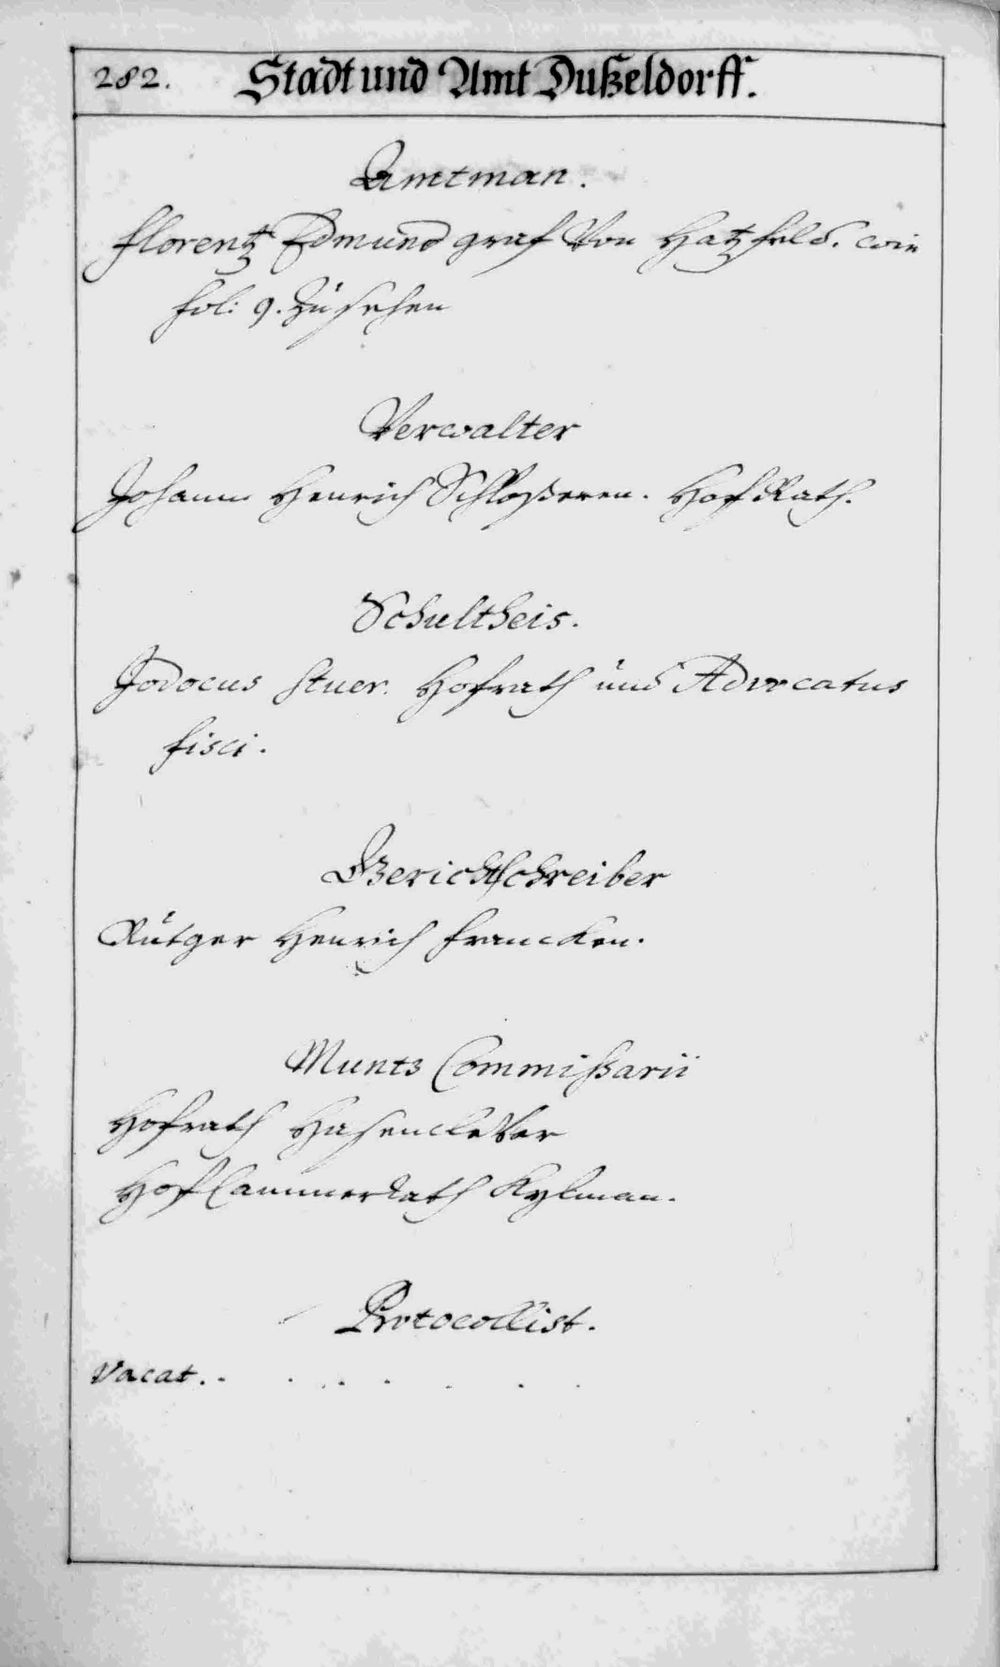 282. Stadt und Amt Dußeldorff.
Amtman.
Florentz Edmund graf Von Hatzfeld. wie
fol: 9. zu sehen
Verwalter
Johann Henrich Schloßeren. Hof Rath.
Schultheis.
Jodocus Stuer. Hofrath und Advocatus
fisci.
Gerichtschreiber
Rutger Henrich Francken.
Munts Commißarii
Hofrath Hasenclever
Hof Cammer Rath Kylman.
Protocollist.
Vacat. . . . . . . . .